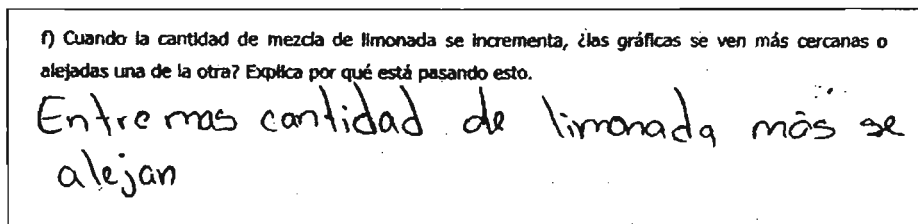 f) Cuando la cantidad de mezcla de limonada se incrementa, ¿las gráficas se ven más cercanas o
alejadas una de la otra? Explica por qué está pasando esto.
Entre mas cantidad de limonada más se
alejan